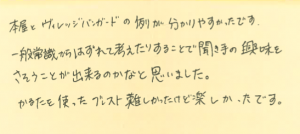 本屋とヴィレッジバンガードの例が分かりやすかったです.
一般常識からはずれて考えたりすることで聞き手の興味を
さそうことが出来るのかなと思いました。
かるたを使ったブレスト難しかったけど楽しかったです。